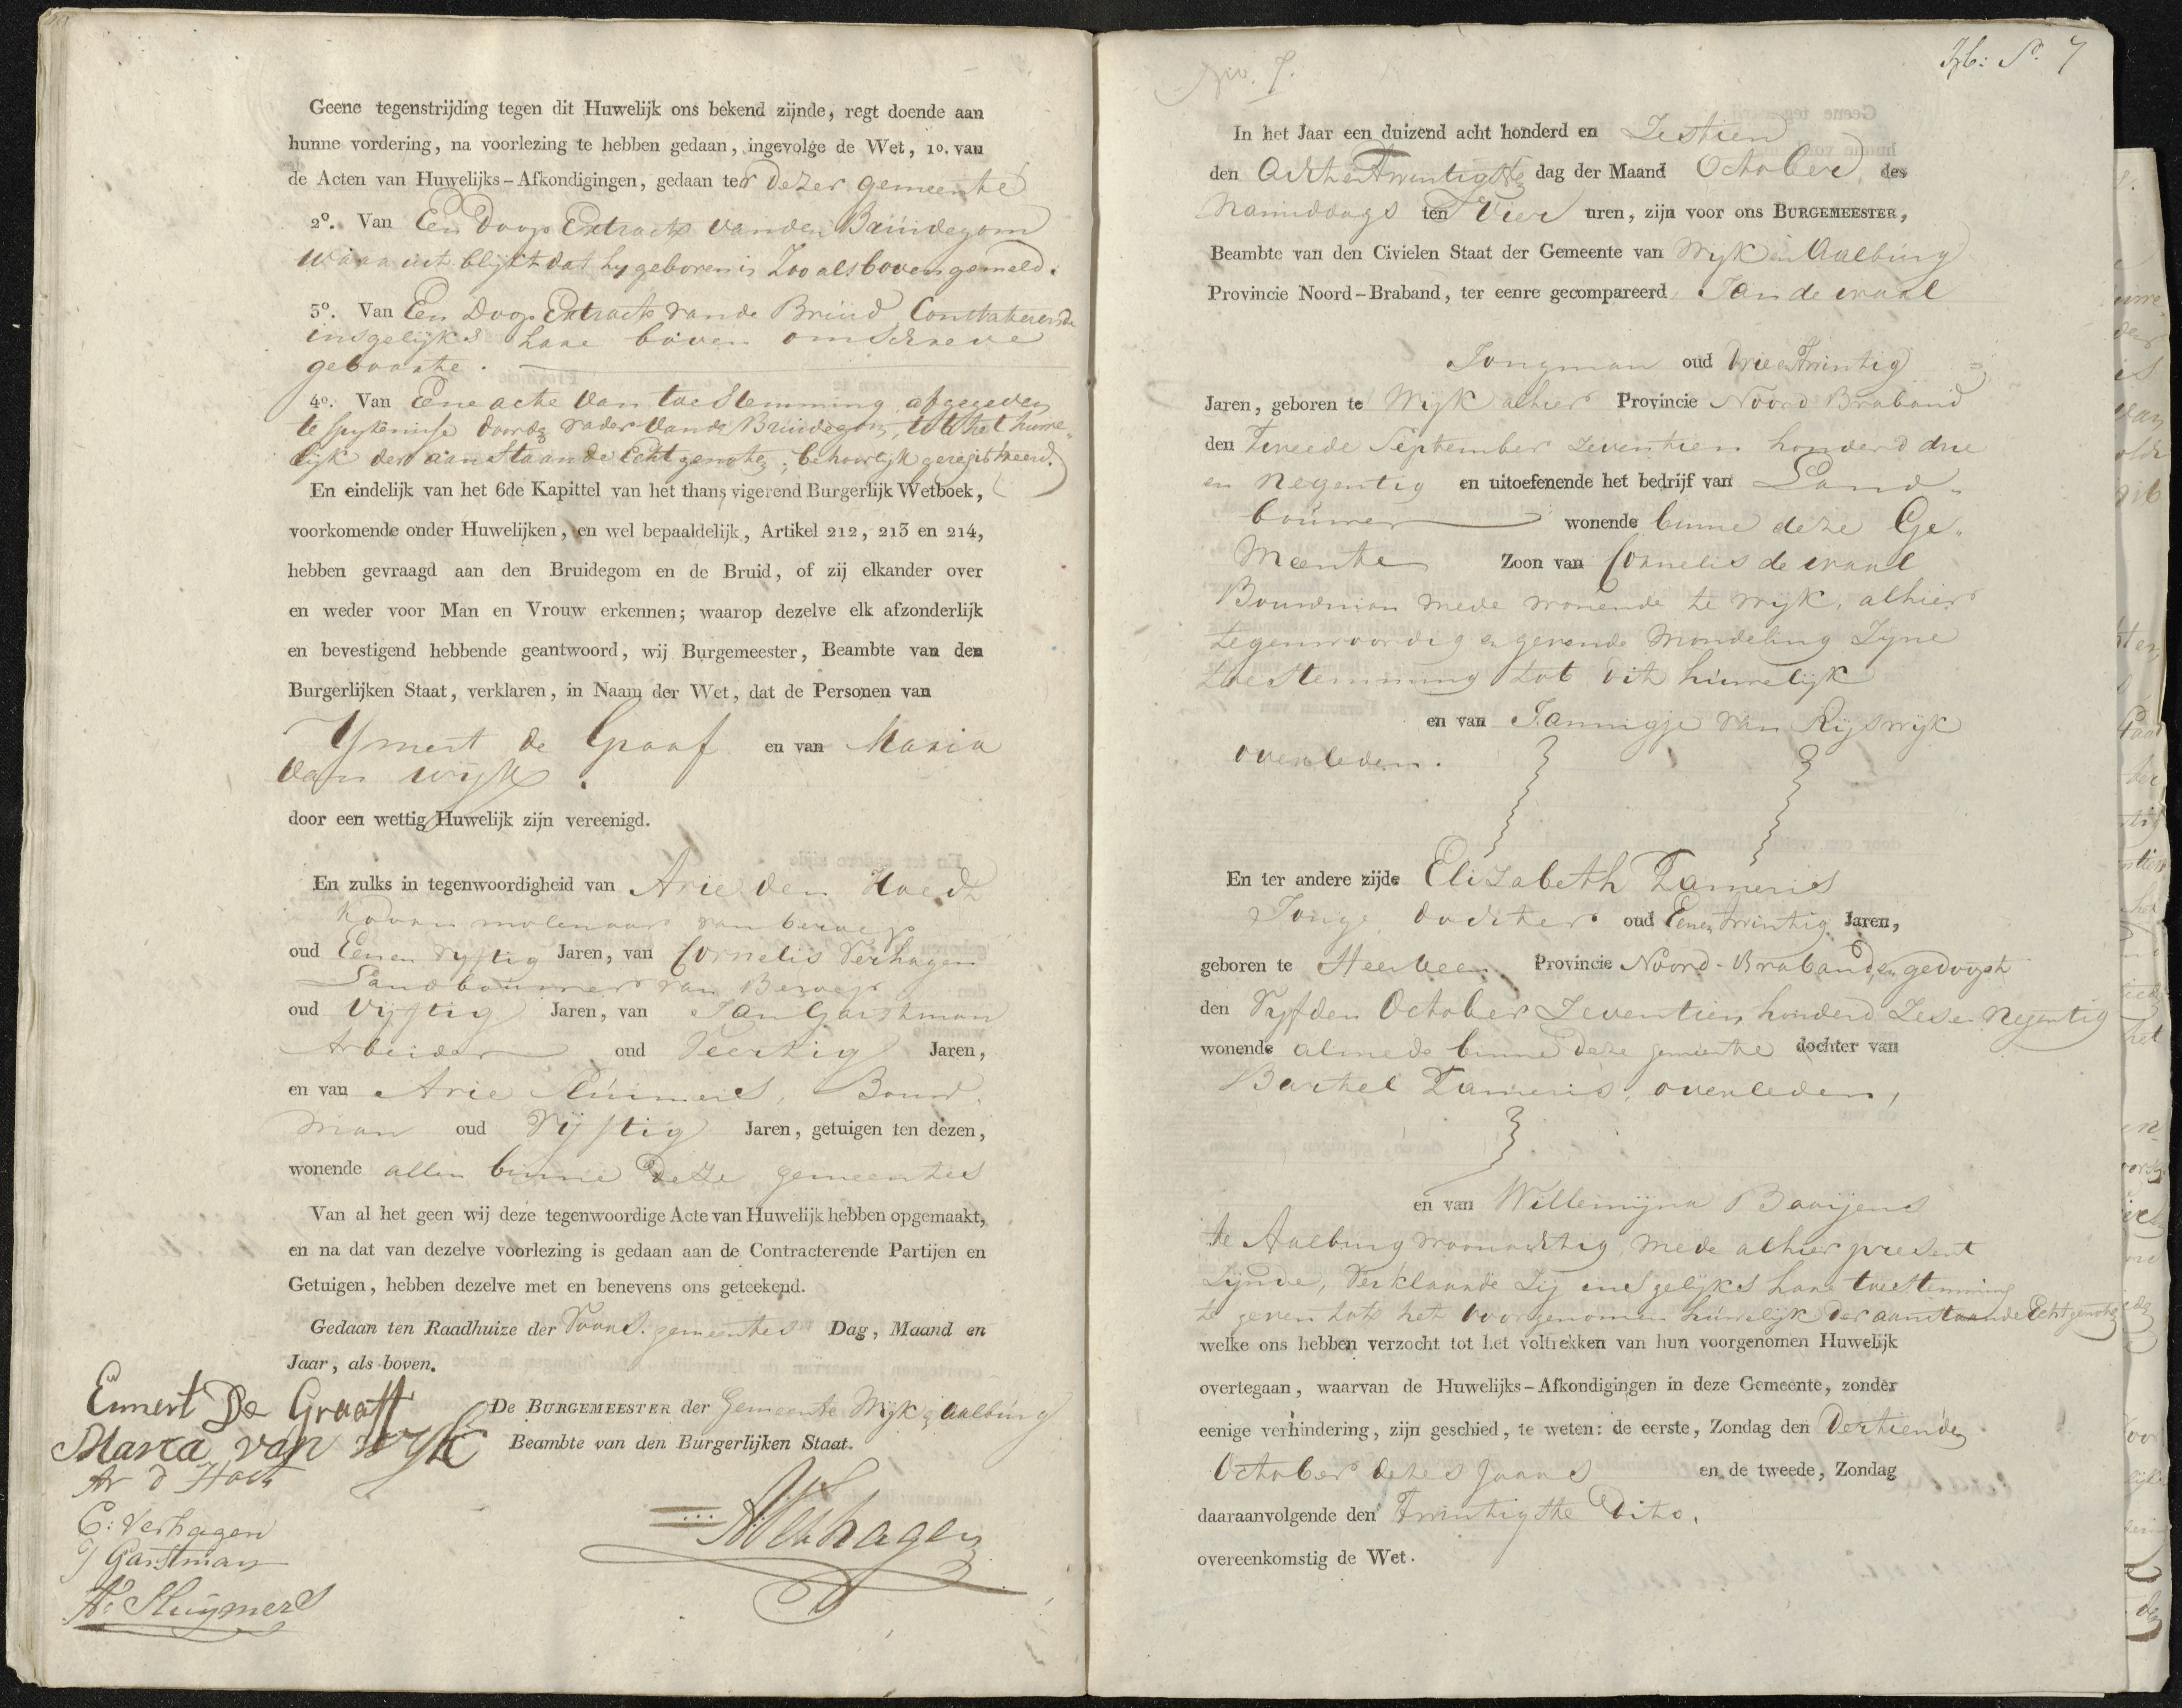 Geene tegenstrijding tegen dit Huwelijk ons bekend zijnde, regt doende aan
hunne vordering, na voorlezing te hebben gedaan, ingevolge de Wet, 1o. van
de Acten van Huwelijks-Afkondigingen, gedaan ter dezer gemeente
2o. Van Een Doop Extract van den Bruidegom
waar uit blijkt dat hy geboren is Zoo als boven gemeld.
3o. Van Een Doop Extract van de Bruid, Constaterende
insgelijks hare boven omschreve
geboorte.
4o. Van Eene acte van toestemming afgegeven
te Spijkenisse door de vader van de Bruidegom, tot het huwe„
lijk der aanstaande Echtgenote, behoorlyk geregistreerd.
En eindelijk van het 6de Kapittel van het thans vigerend Burgerlijk Wetboek,
voorkomende onder Huwelijken, en wel bepaaldelijk, Artikel 212, 213 en 214,
hebben gevraagd aan den Bruidegom en de Bruid, of zij elkander over
en weder voor Man en Vrouw erkennen; waarop dezelve elk afzonderlijk
en bevestigend hebbende geantwoord, wij Burgemeester, Beambte van den
Burgerlijken Staat, verklaren, in Naam der Wet, dat de Personen van
Ymert de Graaf en van Maria
van wijk.
door een wettig Huwelijk zijn vereenigd.
En zulks in tegenwoordigheid van Arie den Hoedt
Koorn molenaar van beroep
oud Een en vyftig Jaren, van Cornelis Verhagen
Landbouwer van Beroep
oud Vijftig Jaren, van Jan Garstman
Arbeider oud Veertig Jaren,
en van Arie Sluimers, Bouw
man oud Vijftig Jaren, getuigen ten dezen,
wonende allen binne deze gemeentes
Van al het geen wij deze tegenwoordige Acte van Huwelijk hebben opgemaakt,
en na dat van dezelve voorlezing is gedaan aan de Contracterende Partijen en
Getuigen, hebben dezelve met en benevens ons geteekend.
Gedaan ten Raadhuize der Voors. gemeentes Dag, Maand en
Jaar, als boven.
Emert De Graaff
De BURGEMEESTER der Gemeente Wijk & Aalburg
Maria van Wyk
Beambte van den Burgerlijken Staat.
Ar d Hoedt
C: Verhagen
J Garstman
A: Sluijmers
AVerhagen
No. 7.
No. 7
In het Jaar een duizend acht honderd en Zestien
den Achtentwintigste dag der Maand October des
Namiddags ten Vier uren, zijn voor ons BURGEMEESTER,
Beambte van den Civielen Staat der Gemeente van Wyk en Aalburg
Provincie Noord-Braband, ter eenre gecompareerd Jan de waal
Jongman oud drie en twintig
Jaren, geboren te Wijk alhier Provincie Noord Braband
den Tweede September zeventien honderd drie
en Negentig en uitoefenende het bedrijf van Land„
bouwer wonende binne deze Ge„
Meente Zoon van Cornelis de waal
Bouwman mede wonende te wijk, alhier
tegenwoordig en gevende Mondeling Zyne
toestemming tot dit huwelijk
en van Jannigje van Rijswijk
overleden.
En ter andere zijde Elizabeth Tameris
Jonge dochter oud Een en twintig Jaren,
geboren te Heerbeen Provincie Noord-Braband, en gedoopt
den Vyfden October Zeventien honderd Zes en Negentig
wonende almede binne deze gemeente dochter van
Barthel Tameris, overleden,
en van Willemijna Baaijens
te Aalburg woonachtig, mede alhier present
Zijnde, Verklaarde Zij insgelijks hare toestemming
te geven tot het voorgenomen huwelijk der aanstaande Echtgenote
welke ons hebben verzocht tot het voltrekken van hun voorgenomen Huwelijk
overtegaan, waarvan de Huwelijks-Afkondigingen in deze Gemeente, zonder
eenige verhindering, zijn geschied, te weten: de eerste, Zondag den Dertienden
October dezes Jaars en de tweede, Zondag
daaraanvolgende den Twintigste Dito.
overeenkomstig de Wet.